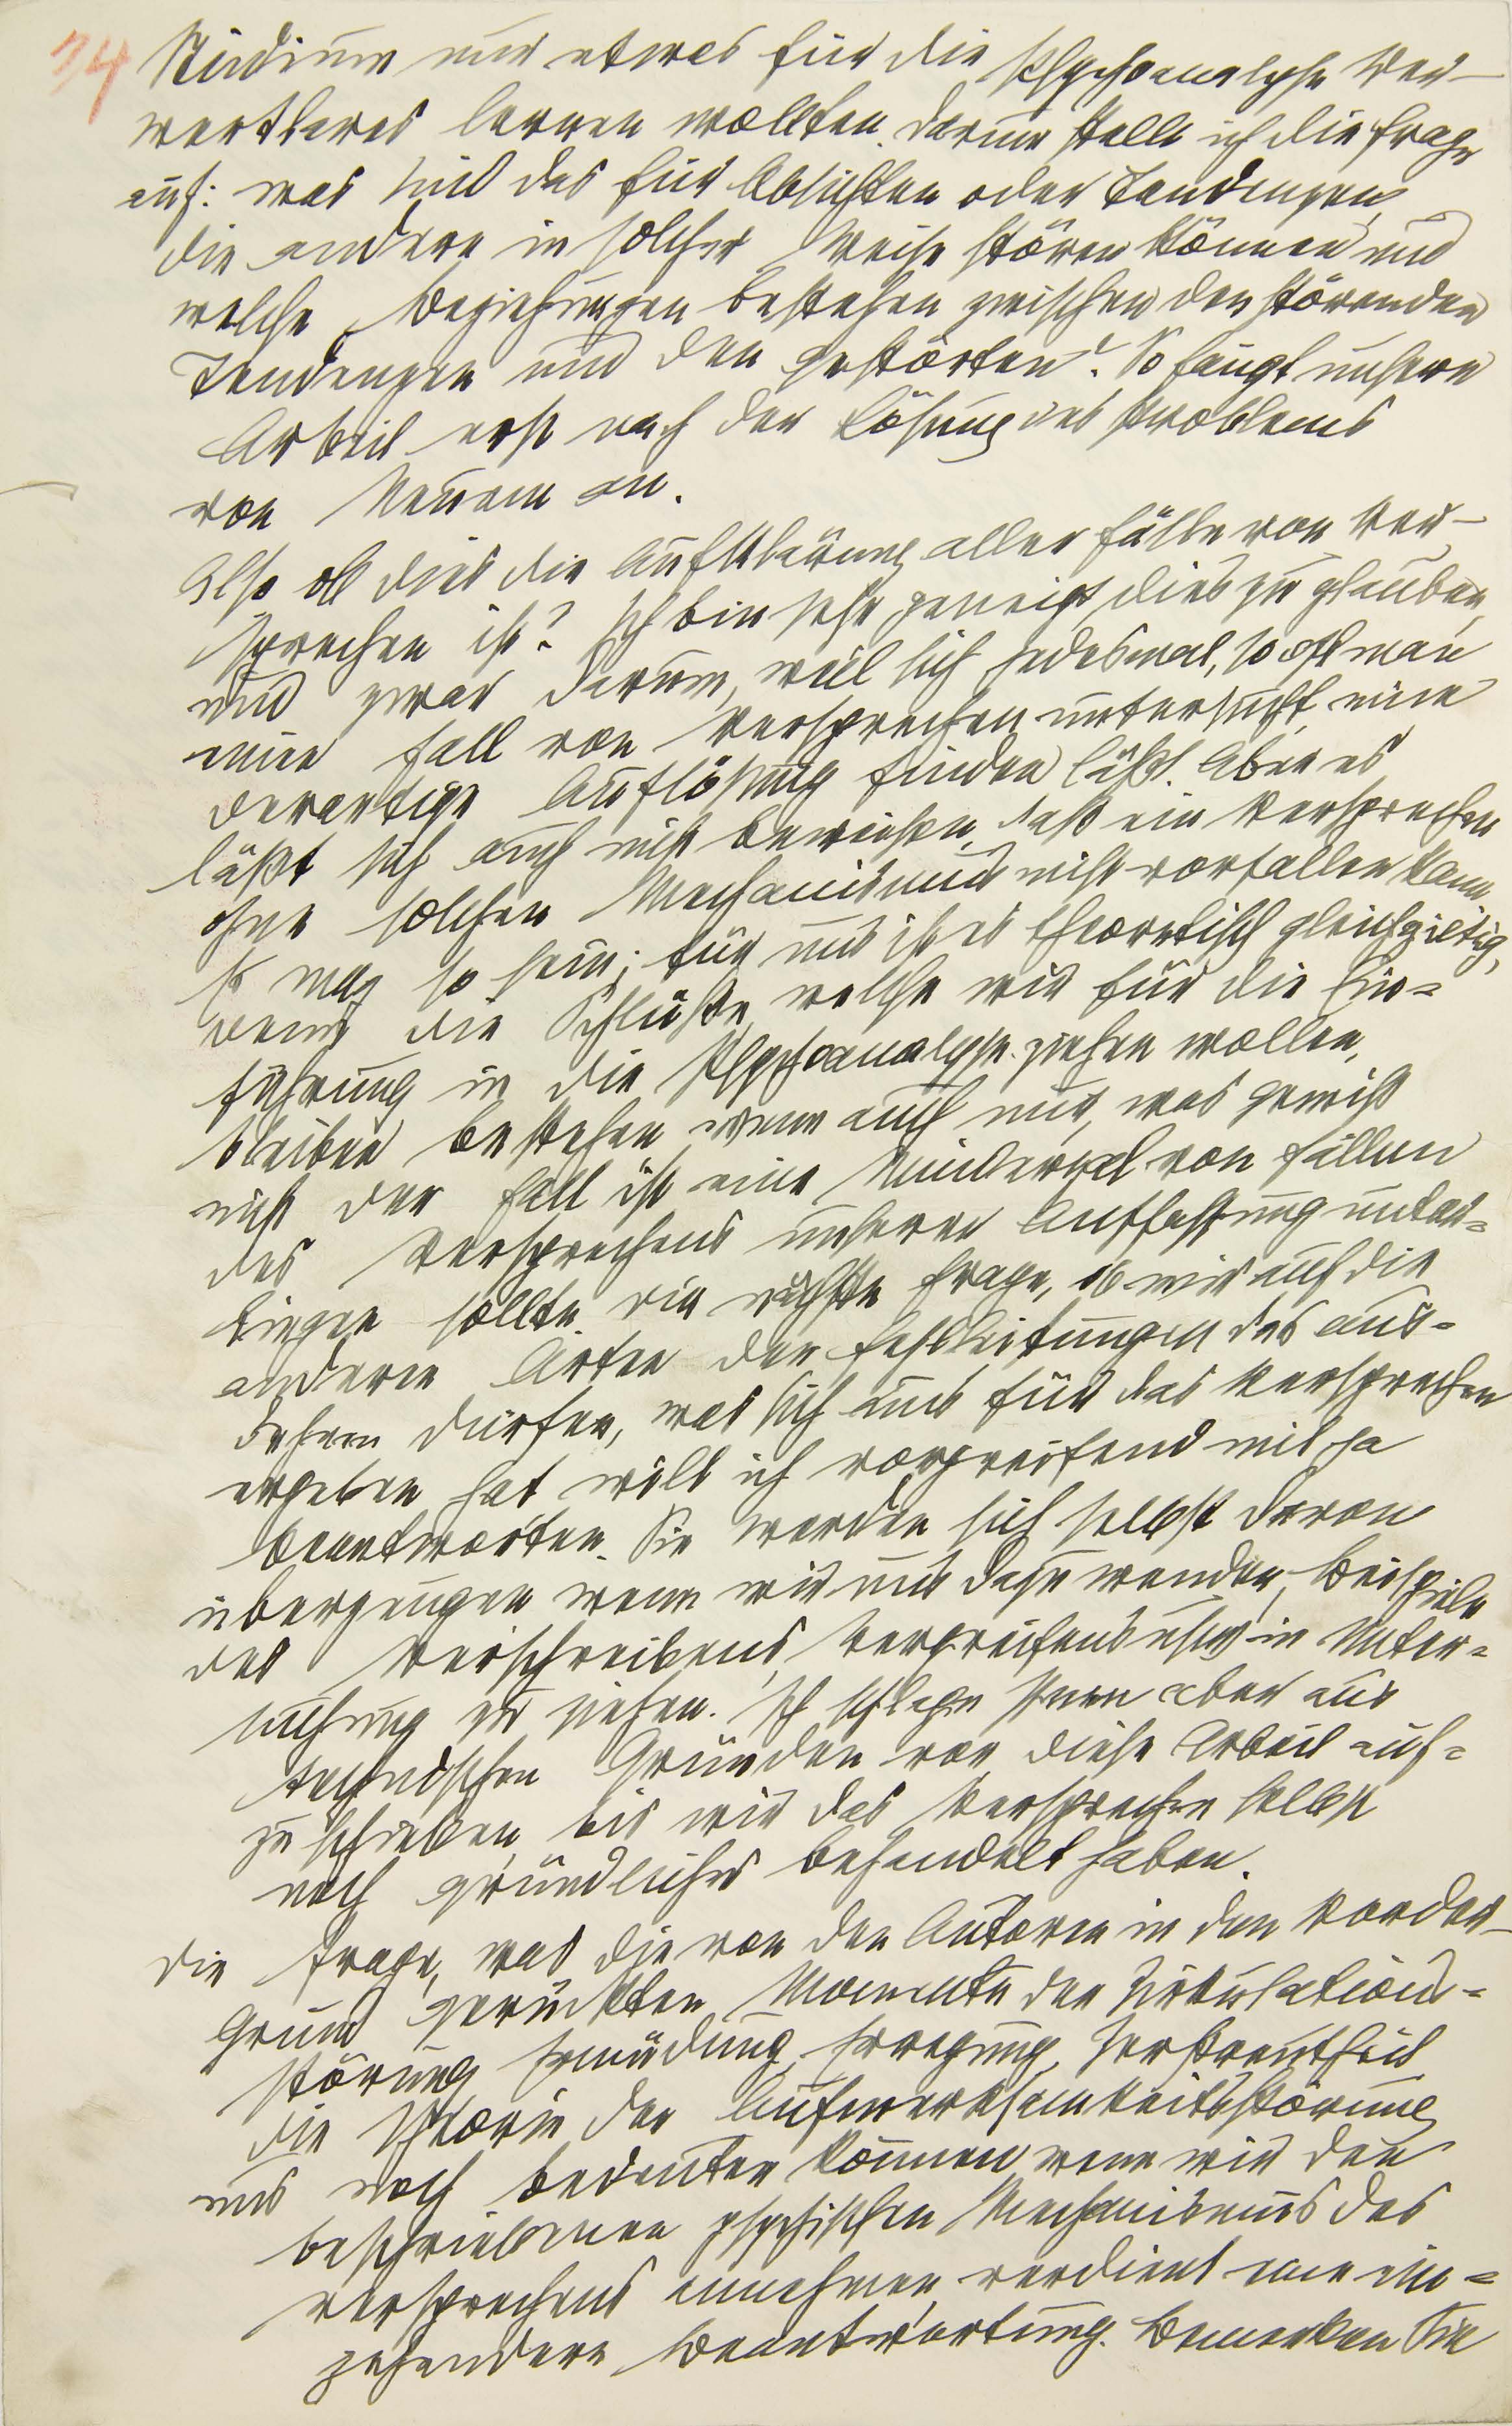 74
Studium nur etwas für die Psychoanalyse Ver-
wertbares lernen wollten. Darum stelle ich die Frage
auf: was sind das für Absichten oder Tendenzen,
die andere in solcher Weise stören können und
welche Beziehungen bestehen zwischen den störenden
Tendenzen und den gestörten? So fängt unsere
Arbeit erst nach der Lösung des Problems
von Neuem an.
Also ob dies die Aufklärung aller Fälle von Ver-
sprechen ist? Ich bin sehr geneigt dies zu glauben,
und zwar darum, weil sich jedesmal, so oft man
einen Fall von Versprechen untersucht, eine
derartige Auflösung finden läßt. Aber es
läßt sich auch nicht beweisen, daß ein Versprechen
ohne solchen Mechanismus nicht vorfallen kann
Es mag so sein; für uns ist es theoretisch gleichgiltig,
denn die Schlüße, welche wir für die Ein=
führung in die Psychoanalyse ziehen wollen,
bleiben bestehen, wenn auch nur, was gewiß
nicht der Fall ist eine Minderzal von Fällen
des Versprechens unserer Auffassung unter=
liegen sollte. Die nächste Frage, ob wir auf die
anderen Arten der Fehlleistungen das aus=
dehnen dürfen, was sich uns für das Versprechen
ergeben hat will ich vorgreifend mit ja
beantworten. Sie werden sich selbst davon
überzeugen wenn wir uns dazu wenden, Beispiele
des Verschreibens, Vergreifens usw in Unter=
suchung zu ziehen. Ich schlage Ihnen aber aus
technischen Gründen vor, diese Arbeit auf=
zuschieben, bis wir das Versprechen selbst
noch gründlicher behandelt haben.
Die Frage, was die von den Autoren in den Vorder-
Grund gerückten Momente der Zirkulations=
störung, Ermüdung, Erregung, Zerstreutheit
die Theorie der Aufmerksamkeitsstörung
uns noch bedeuten können wenn wir den
beschriebenen psychischen Mechanismus des
Versprechens annehmen, verdient eine ein=
gehendere Beantwortung. Bemerken Sie